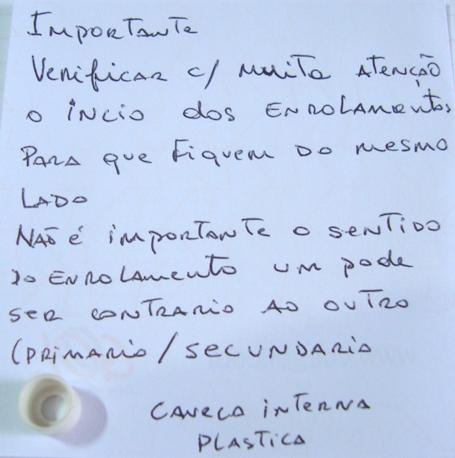 Importante
Verificar c/ muita atenção
o íncio dos enrolamentos
para que fiquem do mesmo
lado
Não é importante o sentido
do enrolamento um pode
ser contrario ao outro
(primario/secundario
caneca interna
plastica